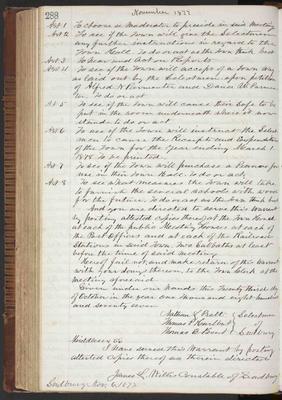 288
November 1877
Art 1 To choose a Moderator to preside in said Meeting
Art 2 To see if the Town will give the Selectmen
any further instructions in regard to the
Town Hall. To do or act as the Town think
Art 3 To hear and act on Reports
Art 4 To see if the Town will accept of a Town way
as laid out by the Selectmen upon petition
of Alfred N and Daniel W
To do or act
Art 5 To see if the Town will cause their safe to be
put in the room underneath where it now
stands to do or act
Art 6 To see if the Town will instruct the Select
men to cause the Receipts and Expenditures
of the Town for the year ending March 1
1878 To be printed
Art 7 To see if the Town will purchase a
use in their Town Hall. To do or act
Art 8 To see what Measures the Town will take
to furnish the several schools with wood
for the future. To do or act as the Town think best
And you are directed to serve this Warrant
by posting attested copies thereof at the Town House
at each of the public Meeting Houses at each of
the Post Offices and at each of the Railroad
Stations in said Town, two Sabbaths at least
before the time of said meeting
Hereof fail not, and make return of this Warrant
with your doings thereon, to the Town Clerk at the
Meeting aforesaid
Given under our hands this Twenty third day
of October in the year one thousand eight hundred
and seventy seven
Selectmen
Thomas P Hurlbut of
Sudbury
Middlesex ss
I have served this Warrant by posting
attested copies thereof as therein directed
James L. Willis Constable of Sudbury
Sudbury Nov 6, 1877